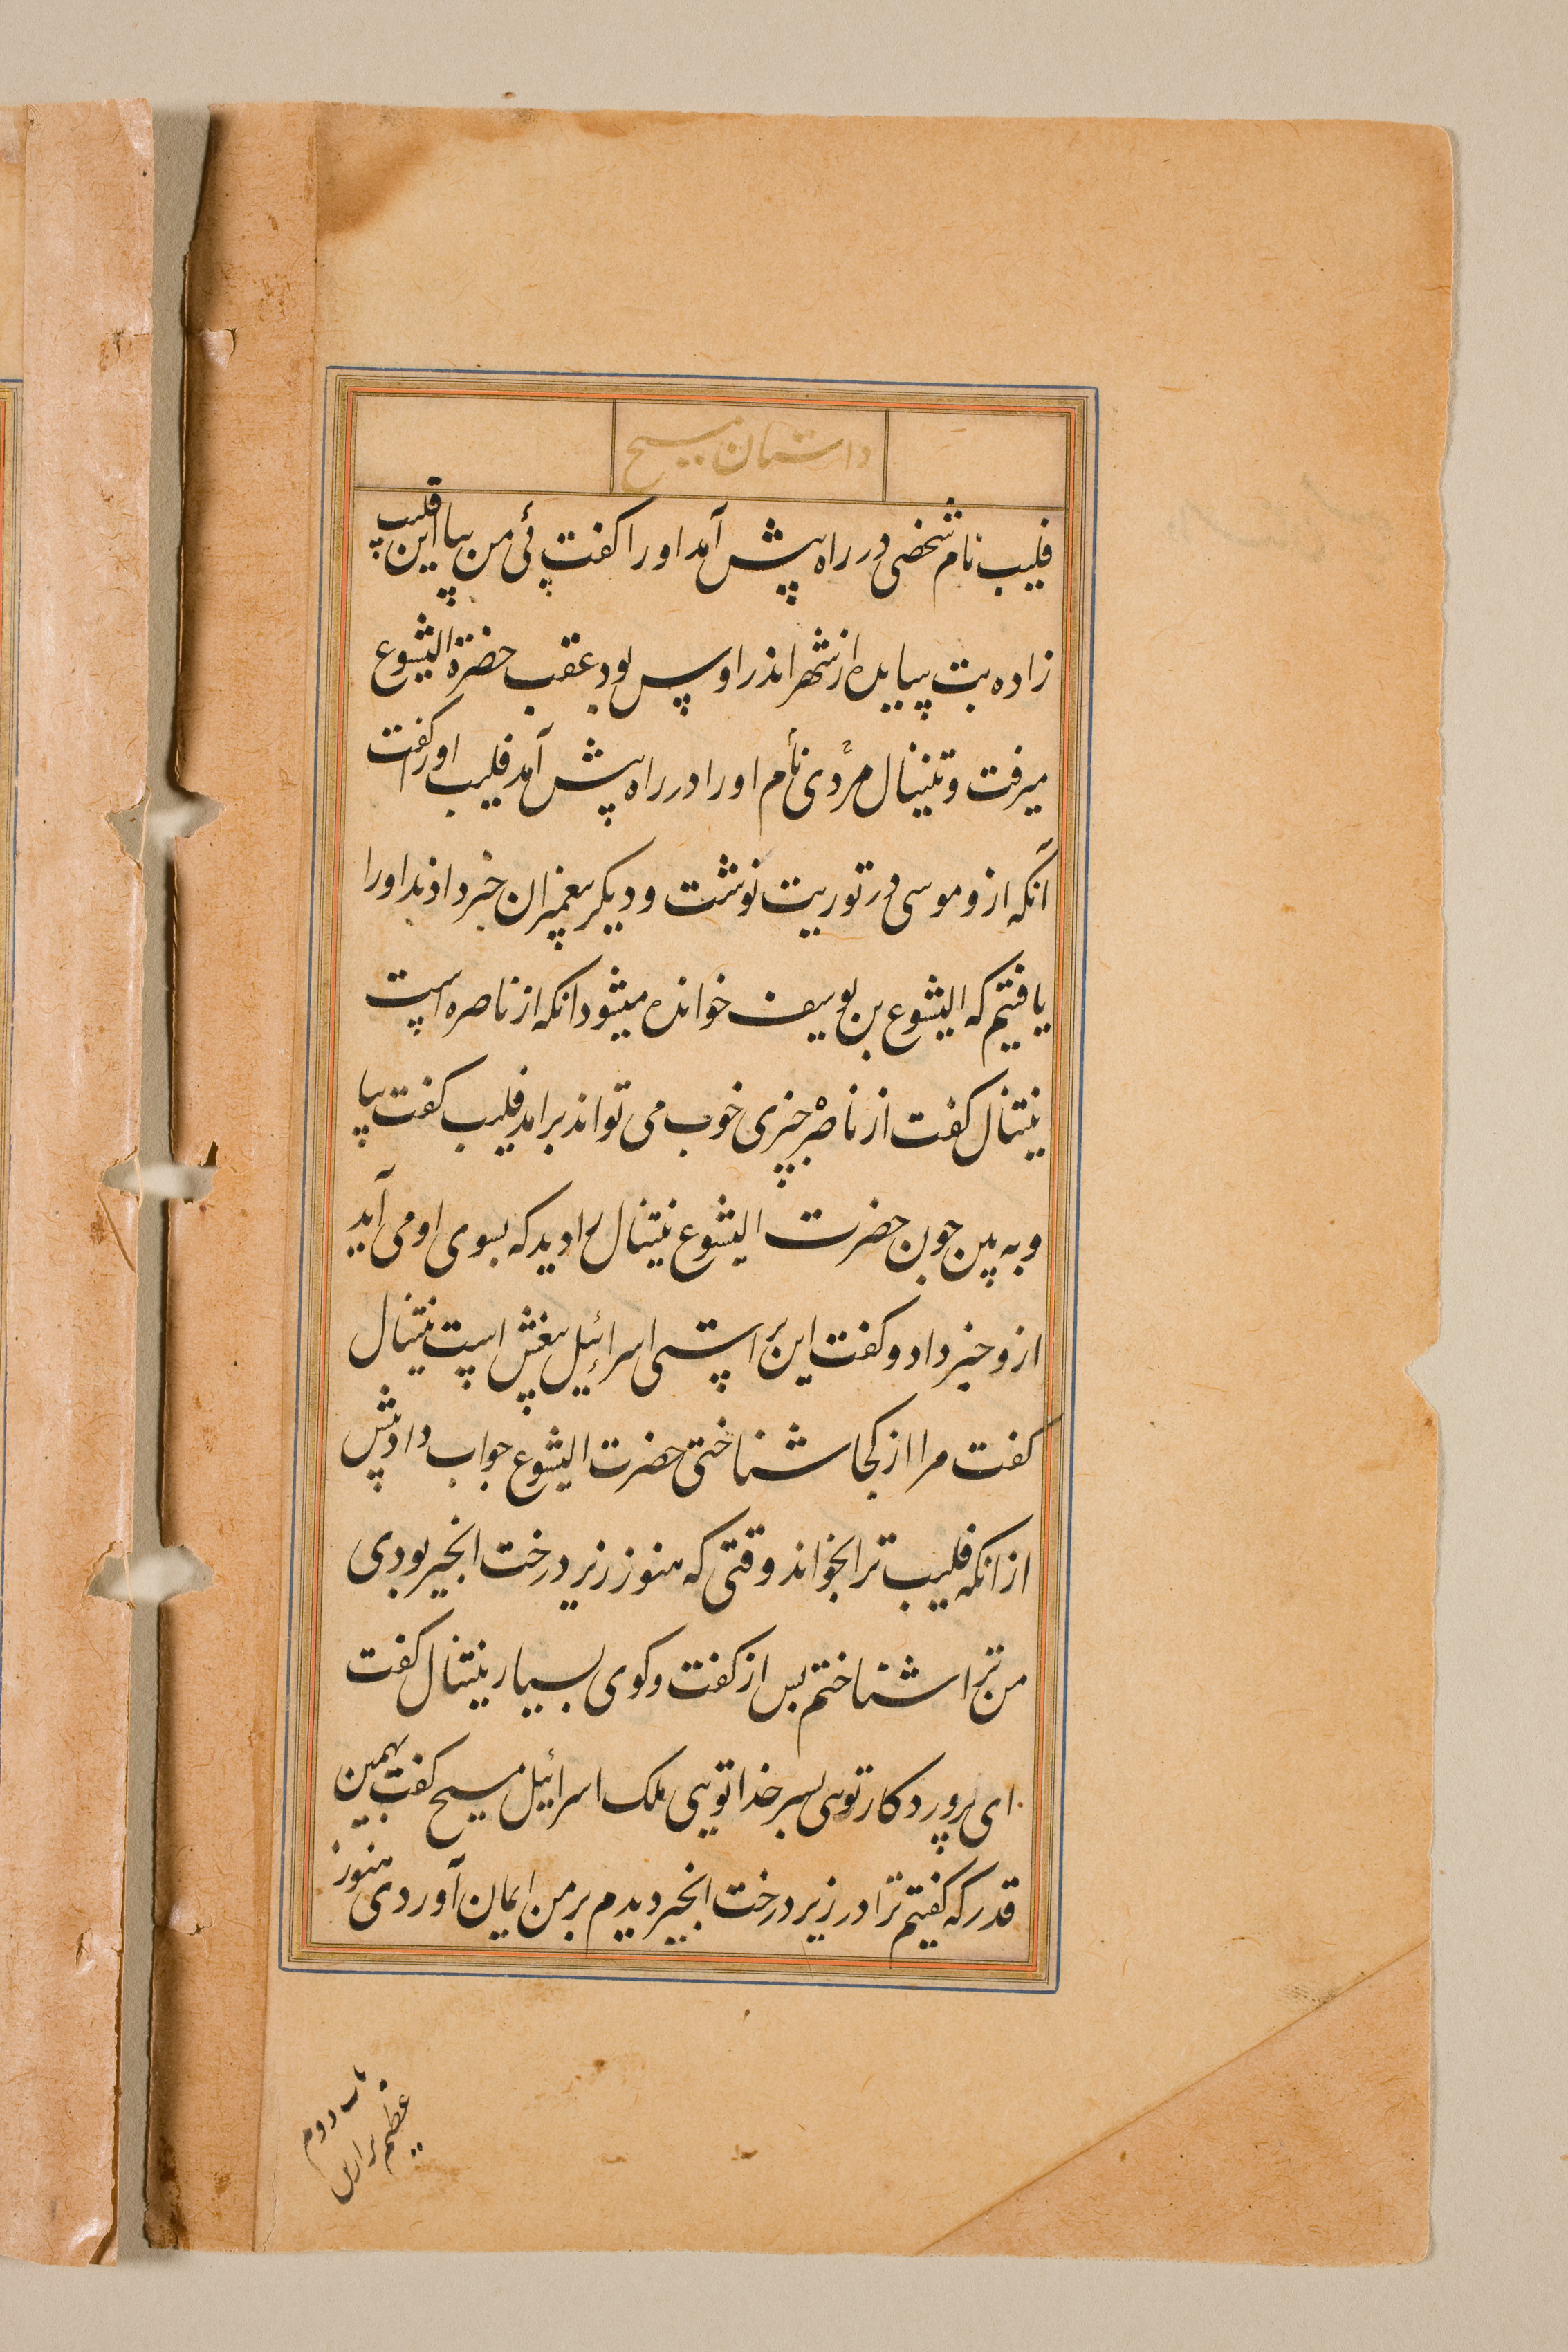 داستان مسیح
فلیپ نام شخصی در راه پیش آمد اورا کفت پئی من بیا این فلیپ
زاده بت سیایده از شهر اندراوس بود عقب حضرة الیشوع
میرفت و نتینال مردی نام اورا در راه پیش آمد فلیپ اورا کفت
آنکه ازو موسی در توریت نوشت و دیکر پیغمبران خبر دادند اورا
یافتیم که الیشوع بن یوسف خوانده میشود انکه از ناصره است
نیتنال کفت از ناصره چیزی خوب می تواند برامد فلیپ کفت بیا
و به بین چون حضرت الیشوع نیتنال را دید که بسوی او می آید
ازو خبر داد و کفت این براستی اسرائیل بیغش است نیتنال
کفت مرا از کجا شناختی حضرت الیشوع جواب داد پیش
از انکه فلیپ ترا بخواند وقتی که هنوز زیر درخت انجیر بودی
من ترا شناختم پس از کفت و کوی بسیار نیتنال کفت
ای پروردکار توئی پسر خدا تویی ملک اسرائیل مسیح کفت بهمین
قدر که کفتیم ترا در زیر درخت انجیر دیدم بر من ایمان آوردی هنوز
دوم
عظیم تر ازین